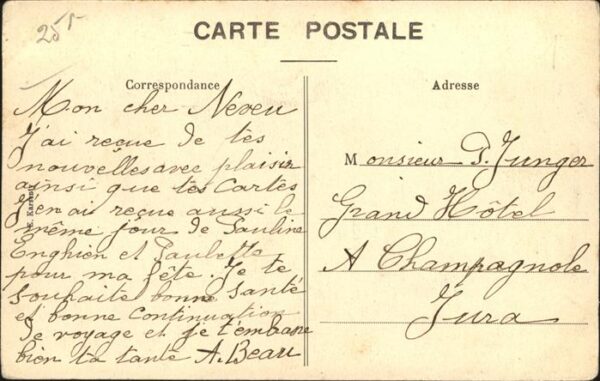 25
CARTE POSTALE
Correspondance
Adresse
Mon cher Neveu
J'ai reçue de tes
nouvelles avec plaisir
ainsi que tes Cartes
J'en ai reçue aussi le
même jour de Pauline
Enghien et Paulette
pour ma fête. Je te
souhaite bonne santé
et bonne Continuation
de voyage et je t'embrasse
bien ta tante A. Beau
Monsieur P. Junger
Grand Hôtel
A Champagnole
Jura